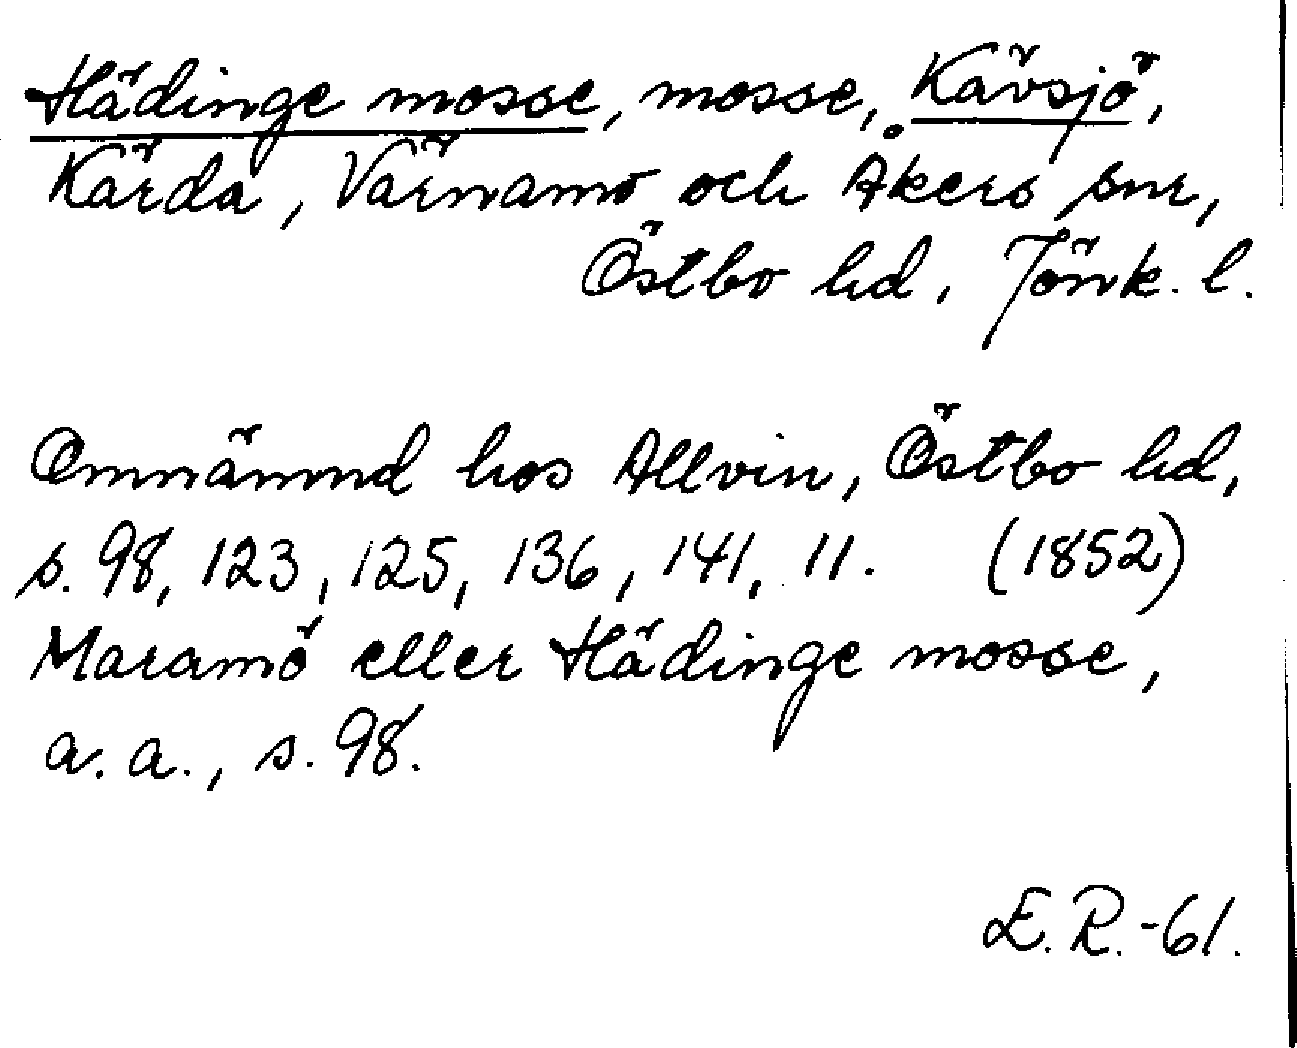 Hädinge mosse, mosse, Kävsjö,
Kärda, Värnamo och Åkers snr,
Östbo hd, Jönk. l.
Omnämnd hos Allvin, Östbo hd,
s. 98, 123, 125, 136, 141, 11. (1852)
Maramö eller Hädinge mosse,
a. a., s. 98.
E. R. -61.